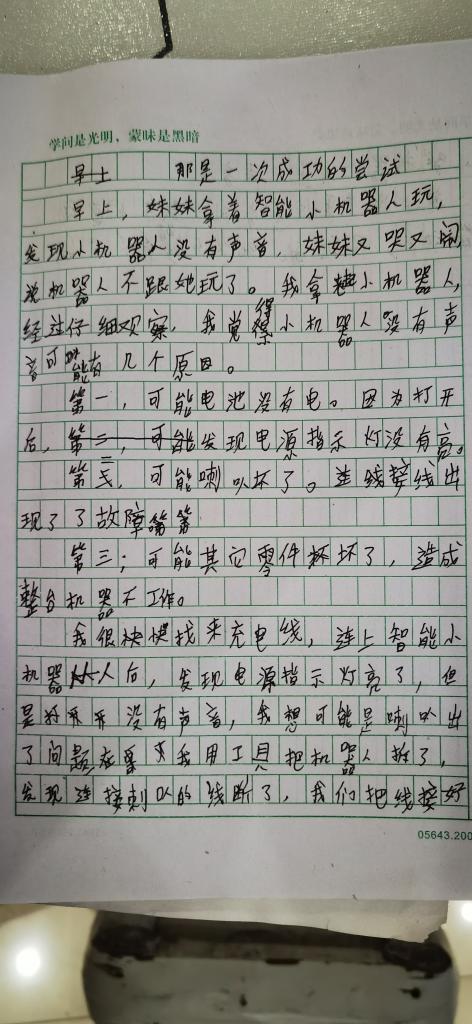 学问是光明，蒙昧是黑暗
早上 那是一次成功的尝试
早上，妹妹拿着智能小机器人玩，
发现小机器人没有声音，妹妹又哭又闹
说机器人不跟她玩了。我拿小机器人，
经过仔细观察，我觉得小机器人没有声
音可能有几个原因。
第一，可能电池没有电。因为打开
后，第二，可能发现电源指示灯没有亮。
第二，可能喇叭坏了。连线接线出
现了了故障第第
第三；可能其它零件坏坏了，造成
整台机器不工作。
我很快快找来充电线，连上智能小
机器人后，发现电源指示灯亮了，但
是开开没有声音，我想可能是喇叭出
了问题 我用工具把机器人拆了，
发现连接喇叭的线断了，我们把线接好
05643.200